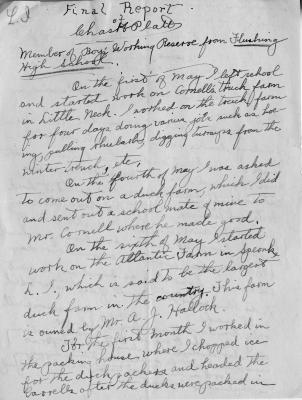 L.I.
Final Report
of
Chas H Platt
Member of Boys Working Reserve from Flushing
High School.
On the first of May I left school
and started work on Cornell's truck farm
in Little Neck. I worked on the truck farm
for four days doing various jobs such as, hoe-
ing, pulling rhubarb, digging turnips from the
winter trench, etc.
On the fourth of May I was asked
to come out on a duck farm, which I did
and sent out a school mate of mine to
Mr. Cornell where he made good.
On the sixth of May I started
work on the Atlantic Farm in Speonk
L. I., which is said to be the largest
duck farm in the country. This farm
is owned by Mr. A. J. Hallock.
For the first month I worked in
the packing house, where I chopped ice
for the duck packers and headed the
barrells after the ducks were packed in